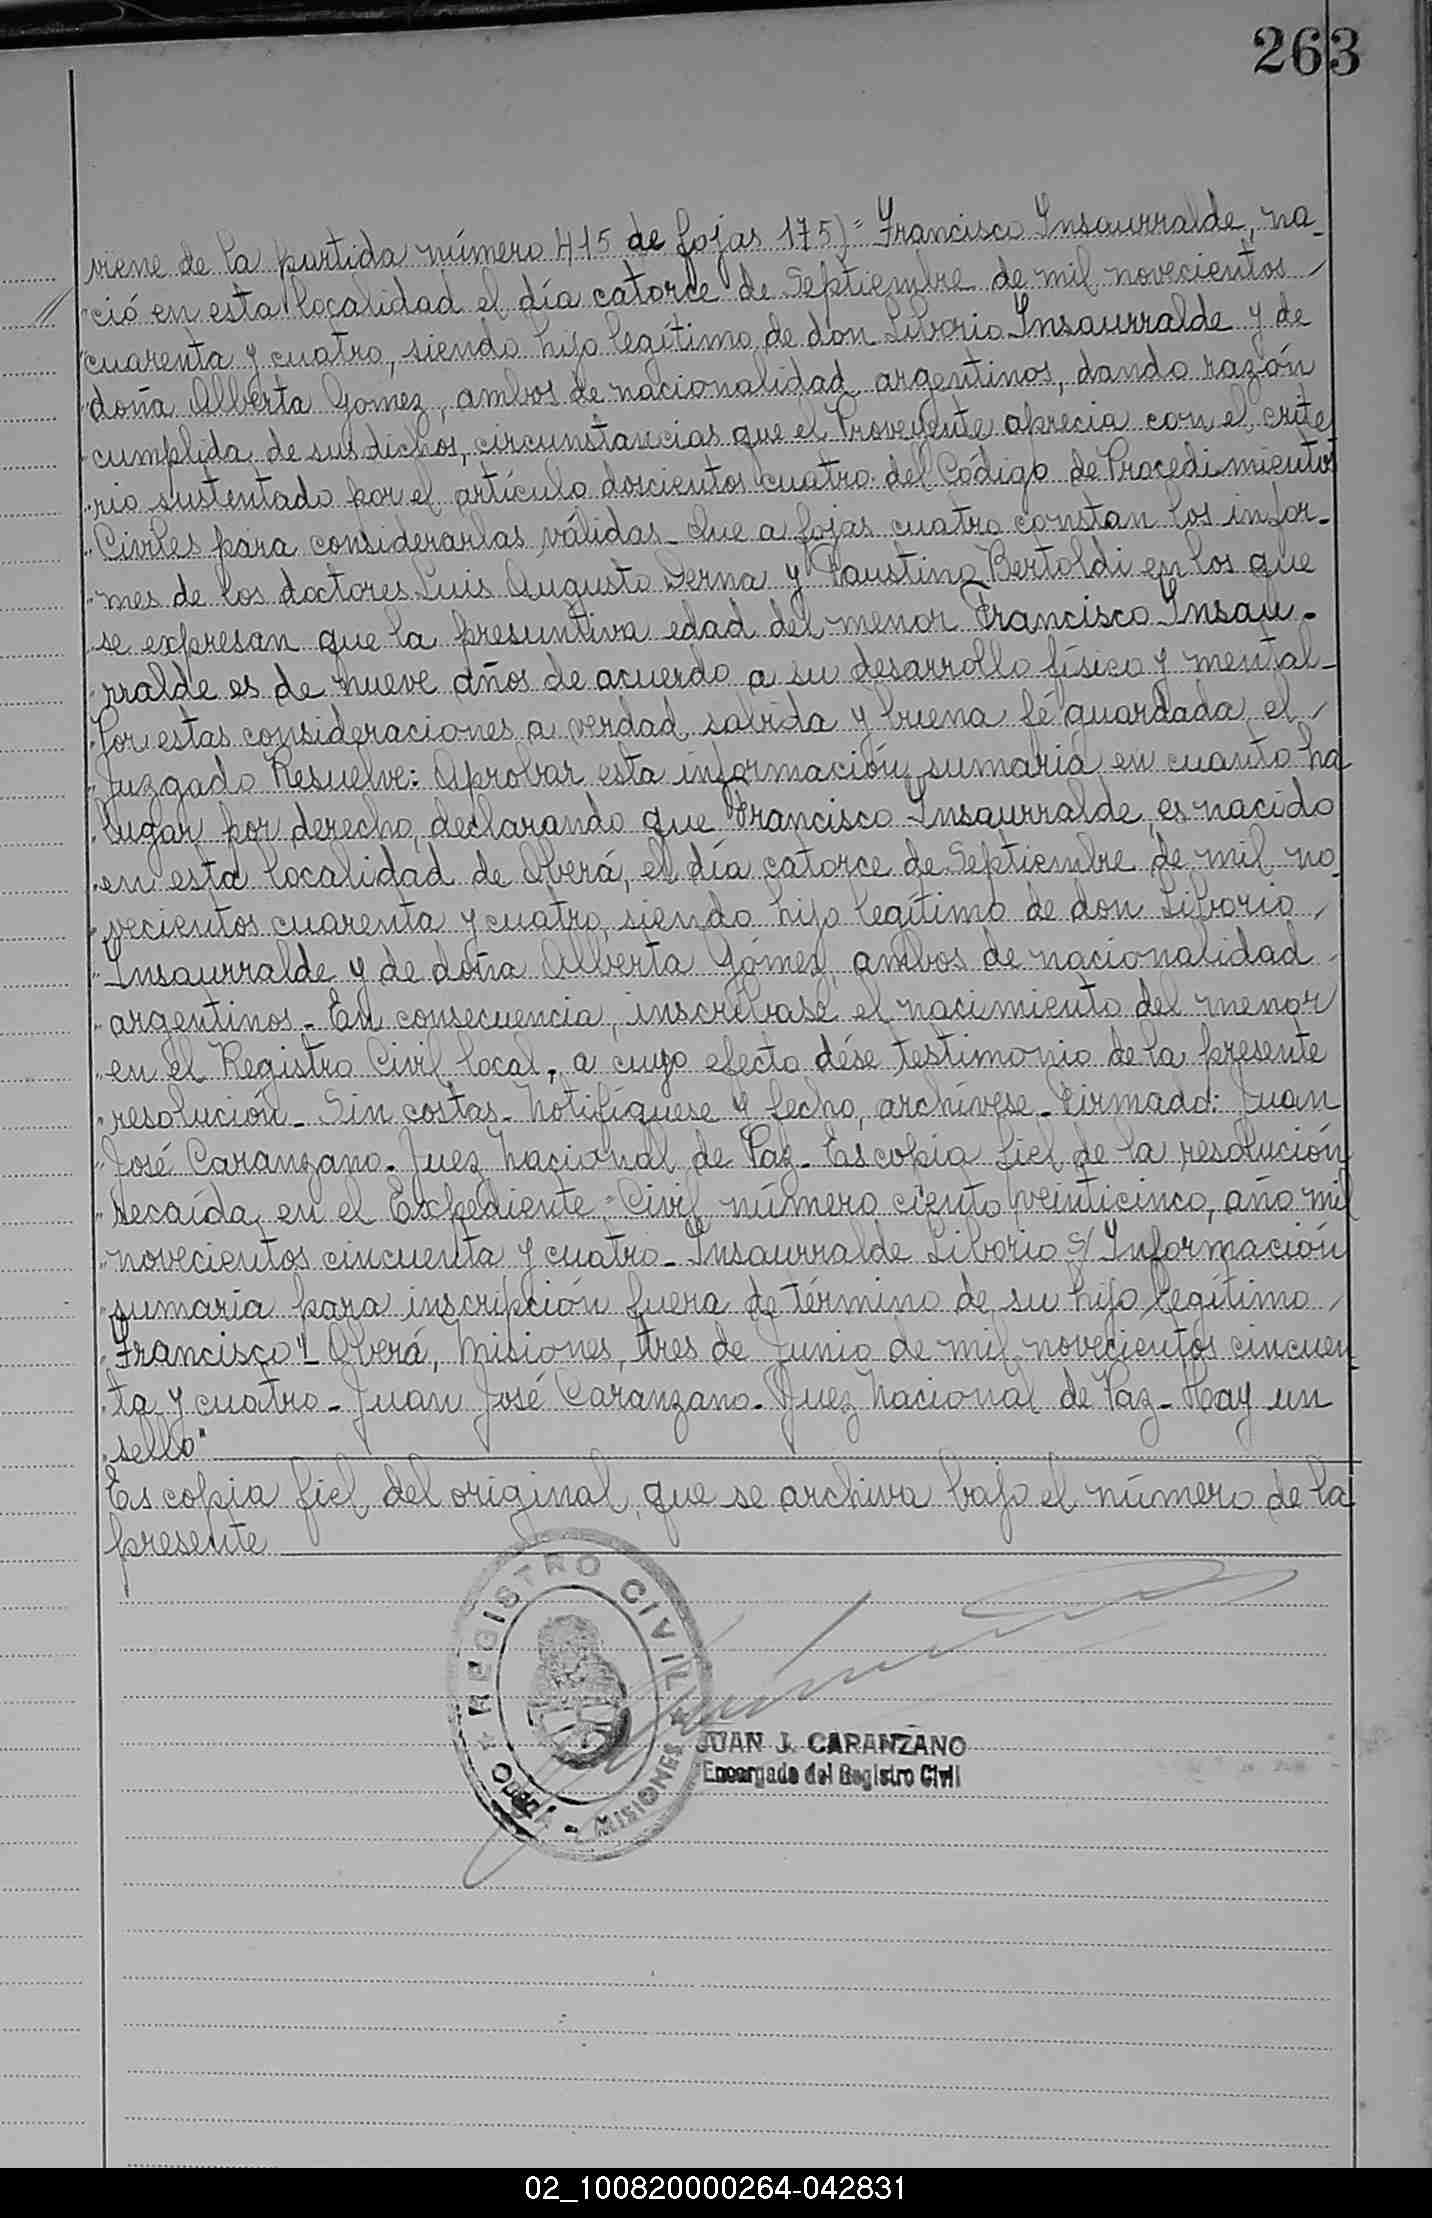 263
viene de la partida número 415 de fojas 175)= Francisco Insaurralde, na-
"ció en esta localidad el día catorce de Septiembre de mil novecientos
"cuarenta y cuatro, siendo hijo legítimo de don Liborio Insaurralde y de
"doña Alberta Gomez, ambos de nacionalidad argentinos, dando razón
"cumplida de sus dichos, circunstancias que el Proveyente aprecia con el crite
"rio sustentado por el artículo doscientos cuatro del Código de Procedimientos
"Civiles para considerarlas válidas_ Que a fojas cuatro constan los infor-
"mes de los doctores Luis Augusto Derna y Faustino Bertoldi en los que
"se expresan que la presuntiva edad del menor Francisco Insau-
"rralde es de nueve años de acuerdo a su desarrollo físico y mental_
"Por estas consideraciones a verdad sabida y buena fé guardada, el
"Juzgado Resuelve: Aprobar esta información sumaria en cuanto ha
"lugar por derecho, declarando que Francisco Insaurralde, es nacido
"en esta localidad de Oberá, el día catorce de Septiembre de mil no_
"vecientos cuarenta y cuatro, siendo hijo legítimo de don Liborio
"Insaurralde y de doña Alberta Gómez, ambos de nacionalidad
"argentinos_ En consecuencia, inscríbase el nacimiento del menor
"en el Registro Civil local, a cuyo efecto dése testimonio de la presente
"resolución_ Sin costas_ Notifíquese y fecho, archívese_ Firmado: Juan
"José Caranzano_ Juez Nacional de Paz_ Es copia fiel de la resolución
"recaída en el Expediente "Civil número ciento veinticinco, año mil
"novecientos cincuenta y cuatro_ Insaurralde Liborio s/ Información
"sumaria para inscripción fuera de término de su hijo legítimo
"Francisco"_ Oberá, Misiones, tres de Junio de mil novecientos cincuen
"ta y cuatro_ Juan José Caranzano_ Juez Nacional de Paz_ Hay un
"sello"
Es copia fiel del original, que se archiva bajo el número de la
presente
REGISTRO CIVIL
OBERÁ - MISIONES
JUAN J. CARANZANO
Encargado del Registro Civil
02_100820000264-042831